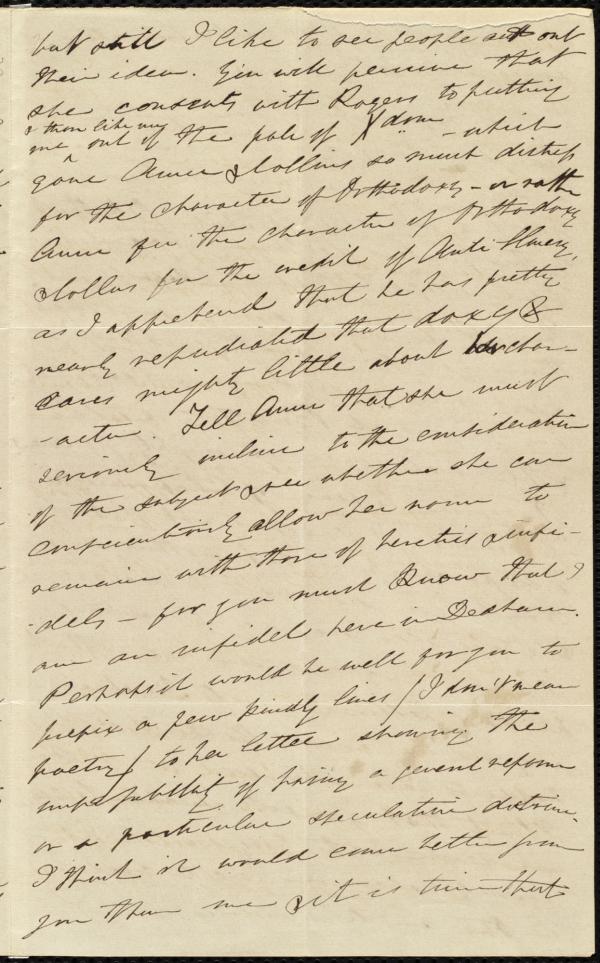 but still I like to see people act out
their idea. You will perceive that
she consents with Rogers to putting
& them like my
me ^ out of the pale of Xdom - which
gave Anne & Collins so much distress
for the character of Orthodoxy - or rather
Anne for the character of Orthodoxy
& Collins for the credit of Anti Slavery,
as I apprehend that he has pretty
nearly repudiated that doxy &
cares mighty little about its char-
-acter. Tell Anne that she must
seriously incline to the consideration
of the subject & see whether she can
conscientiously allow her name to
remain with those of heretics & infi-
-dels - for you must know that I
am an infidel here in Dedham.
Perhaps it would be well for you to
prefix a few kindly lines (I don't mean
poetry) to her letter showing the
impossibility of fixing a general reform
or a particular speculative doctrine.
I think it would come better from
you than me & it is time that